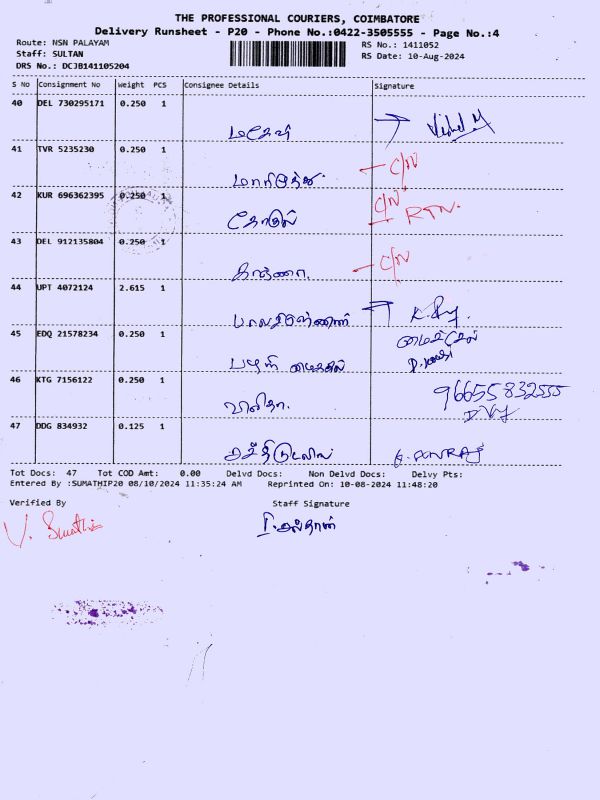 THE PROFESSIONAL COURIERS, COIMBATORE
Delivery Runsheet - P20 - Phone No.:0422-3505555 - Page No.:4
Route: NSN PALAYAM
RS No.: 1411052
Staff: SULTAN
RS Date: 10-Aug-2024
DRS No.: DCJB141105204
S No Consignment No Weight PCS Consignee Details Signature
40 DEL 730295171 0.250 1
மகேஷ்
41 TVR 5235230 0.250 1
மாரிமுத்து C/N
42 KUR 696362395 0.250 1 C/N
கோகுல் RTN.
43 DEL 912135804 0.250 1 C/N
44 UPT 4072124 2.615 1
45 EDQ 21578234 0.250 1
பழனி
46 KTG 7156122 0.250 1
96655832555
47 DDG 834932 0.125 1
Tot Docs: 47 Tot COD Amt: 0.00 Delvd Docs: Non Delvd Docs: Delvy Pts:
Entered By :SUMATHIP20 08/10/2024 11:35:24 AM Reprinted On: 10-08-2024 11:48:20
Verified By Staff Signature
V. Sumathi